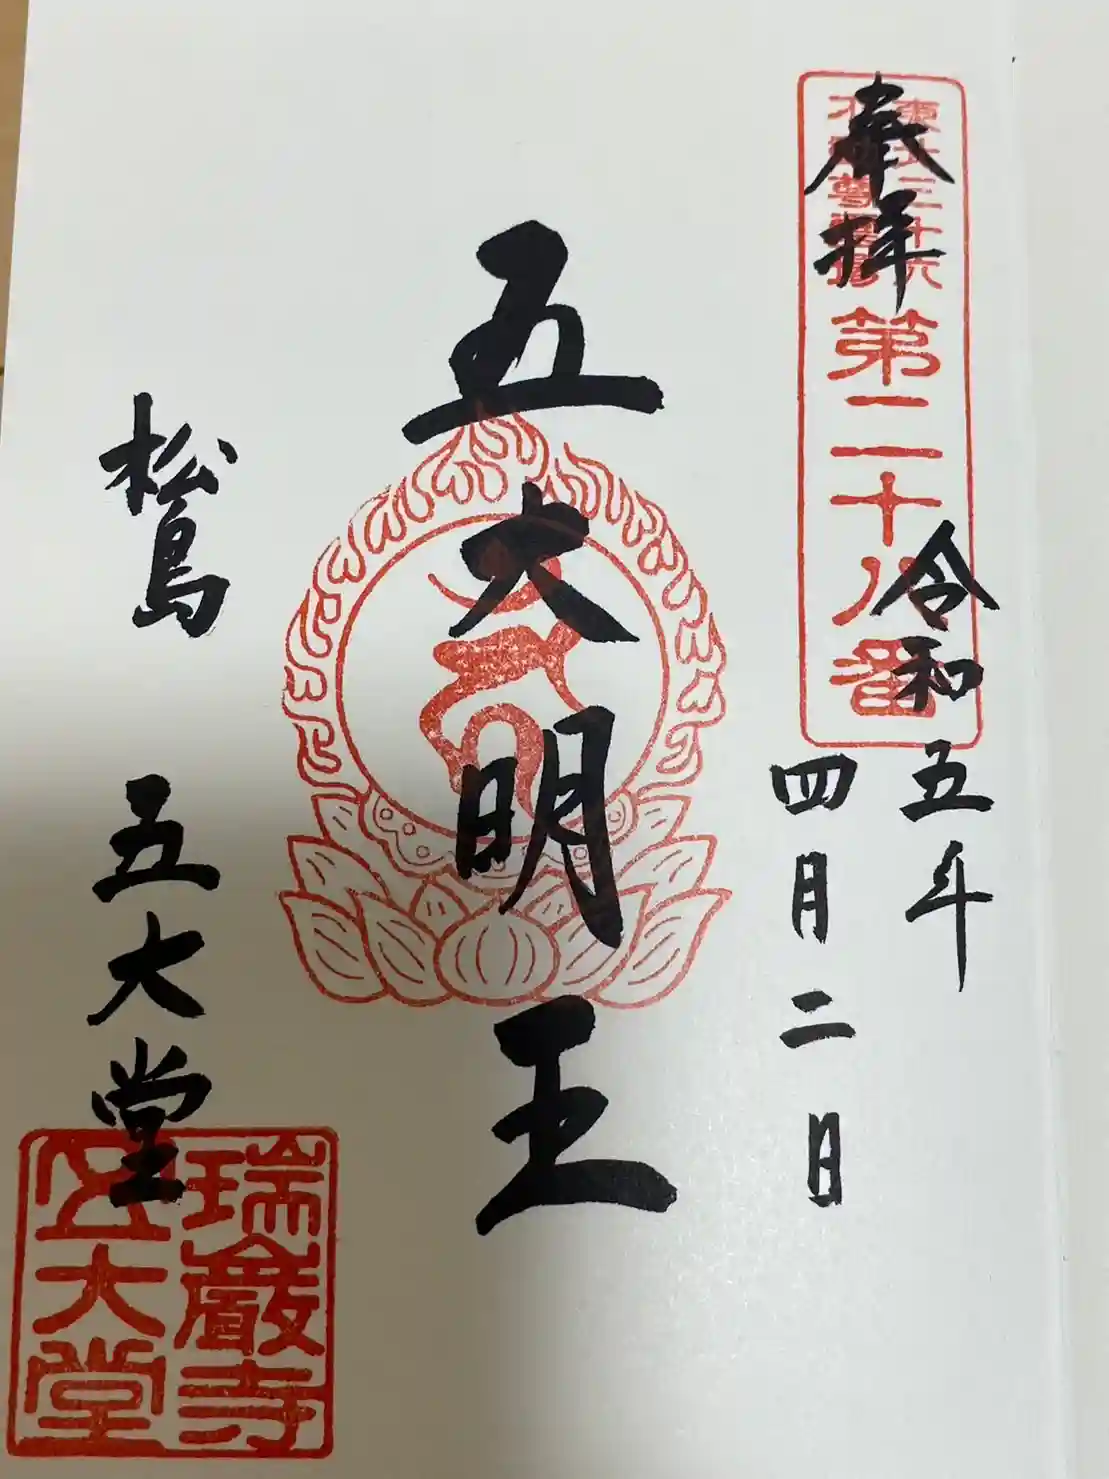 奉拝
東北三十六
不動尊霊場
第二十八番
令和五年
四月二日
五大明王
松島
五大堂
瑞巌寺
五大堂